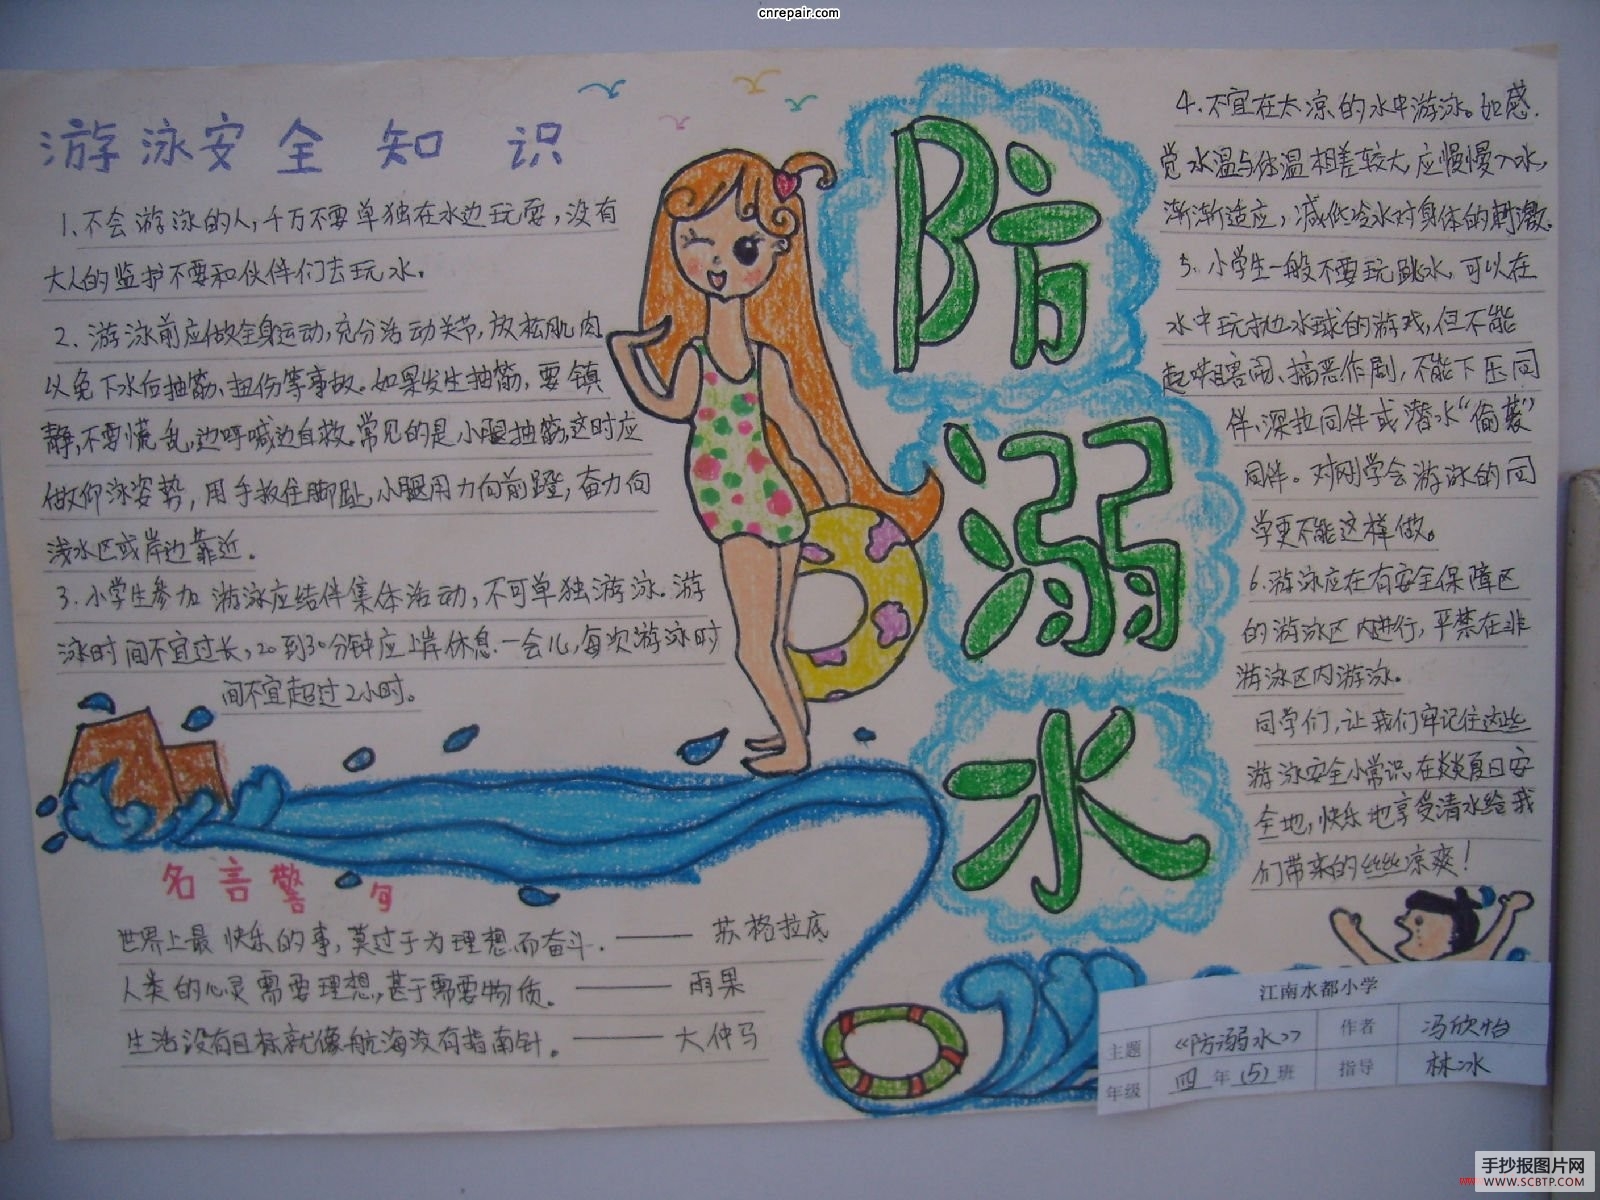 cnrepair.com
游泳安全知识
1、不会游泳的人，千万不要单独在水边玩耍，没有
大人的监护不要和伙伴们去玩水。
2、游泳前应做全身运动，充分活动关节，放松肌肉
以免下水后抽筋、扭伤等事故。如果发生抽筋，要镇
静，不要慌乱，边呼喊边自救。常见的是小腿抽筋，这时应
做仰泳姿势，用手扳住脚趾，小腿用力向前蹬，奋力向
浅水区或岸边靠近。
3、小学生参加游泳应结伴集体活动，不可单独游泳。游
泳时间不宜过长，20到30分钟应上岸休息一会儿，每次游泳时
间不宜超过2小时。
防
溺
水
4、不宜在太凉的水中游泳。如感
觉水温与体温相差较大，应慢慢入水，
渐渐适应，减低冷水对身体的刺激。
5、小学生一般不要玩跳水，可以在
水中玩抛水球的游戏，但不能
起哄害闹、搞恶作剧，不能下压同
伴、深拉同伴或潜水“偷袭”
同伴。对刚学会游泳的同
学更不能这样做。
6、游泳应在有安全保障区
的游泳区内进行，严禁在非
游泳区内游泳。
同学们，让我们牢记住这些
游泳安全小常识，在炎炎夏日安
全地，快乐地享受清水给我
们带来的丝丝凉爽！
名言警句
世界上最快乐的事，莫过于为理想而奋斗.——苏格拉底
人类的心灵需要理想，甚于需要物质。——雨果
生活没有目标就像航海没有指南针。——大仲马
江南水都小学
主题 《防溺水》 作者 冯欣怡
年级 四年(5)班 指导 林冰
手抄报图片网
WWW.SCBTP.COM